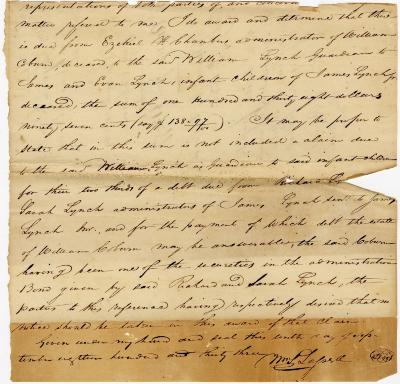 representations of both parties of, and concern
matter refered to me, I do award and determine that there
is due from Ezekiel H Chambers, administrator of William
Coburn, deceased, to the said William Lynch Guardian to
James and Evan Lynch, infant children of James Lynch Jr
deceased, the sum of one hundred and thirty eight dollars
ninety seven cents (say $138-97/100). It may be proper to
state that in this sum is not included a claim due
to the said William Lynch as Guardian to said infant children
for their two thirds of a debt due from Richard &
Sarah Lynch administrators of James Lynch Senr to James
Lynch Jnr. and for the payment of which debt the estate
of William Coburn may be answerable, the said Coburn
having been one of the securities in the administration
Bond given by said Richard and Sarah Lynch, the
parties to this reference having respectively desired that no
notice should be taken in this award of that claim.
Given under my hand and seal this tenth day of Sep-
tember eighteen hundred and thirty three
Wm